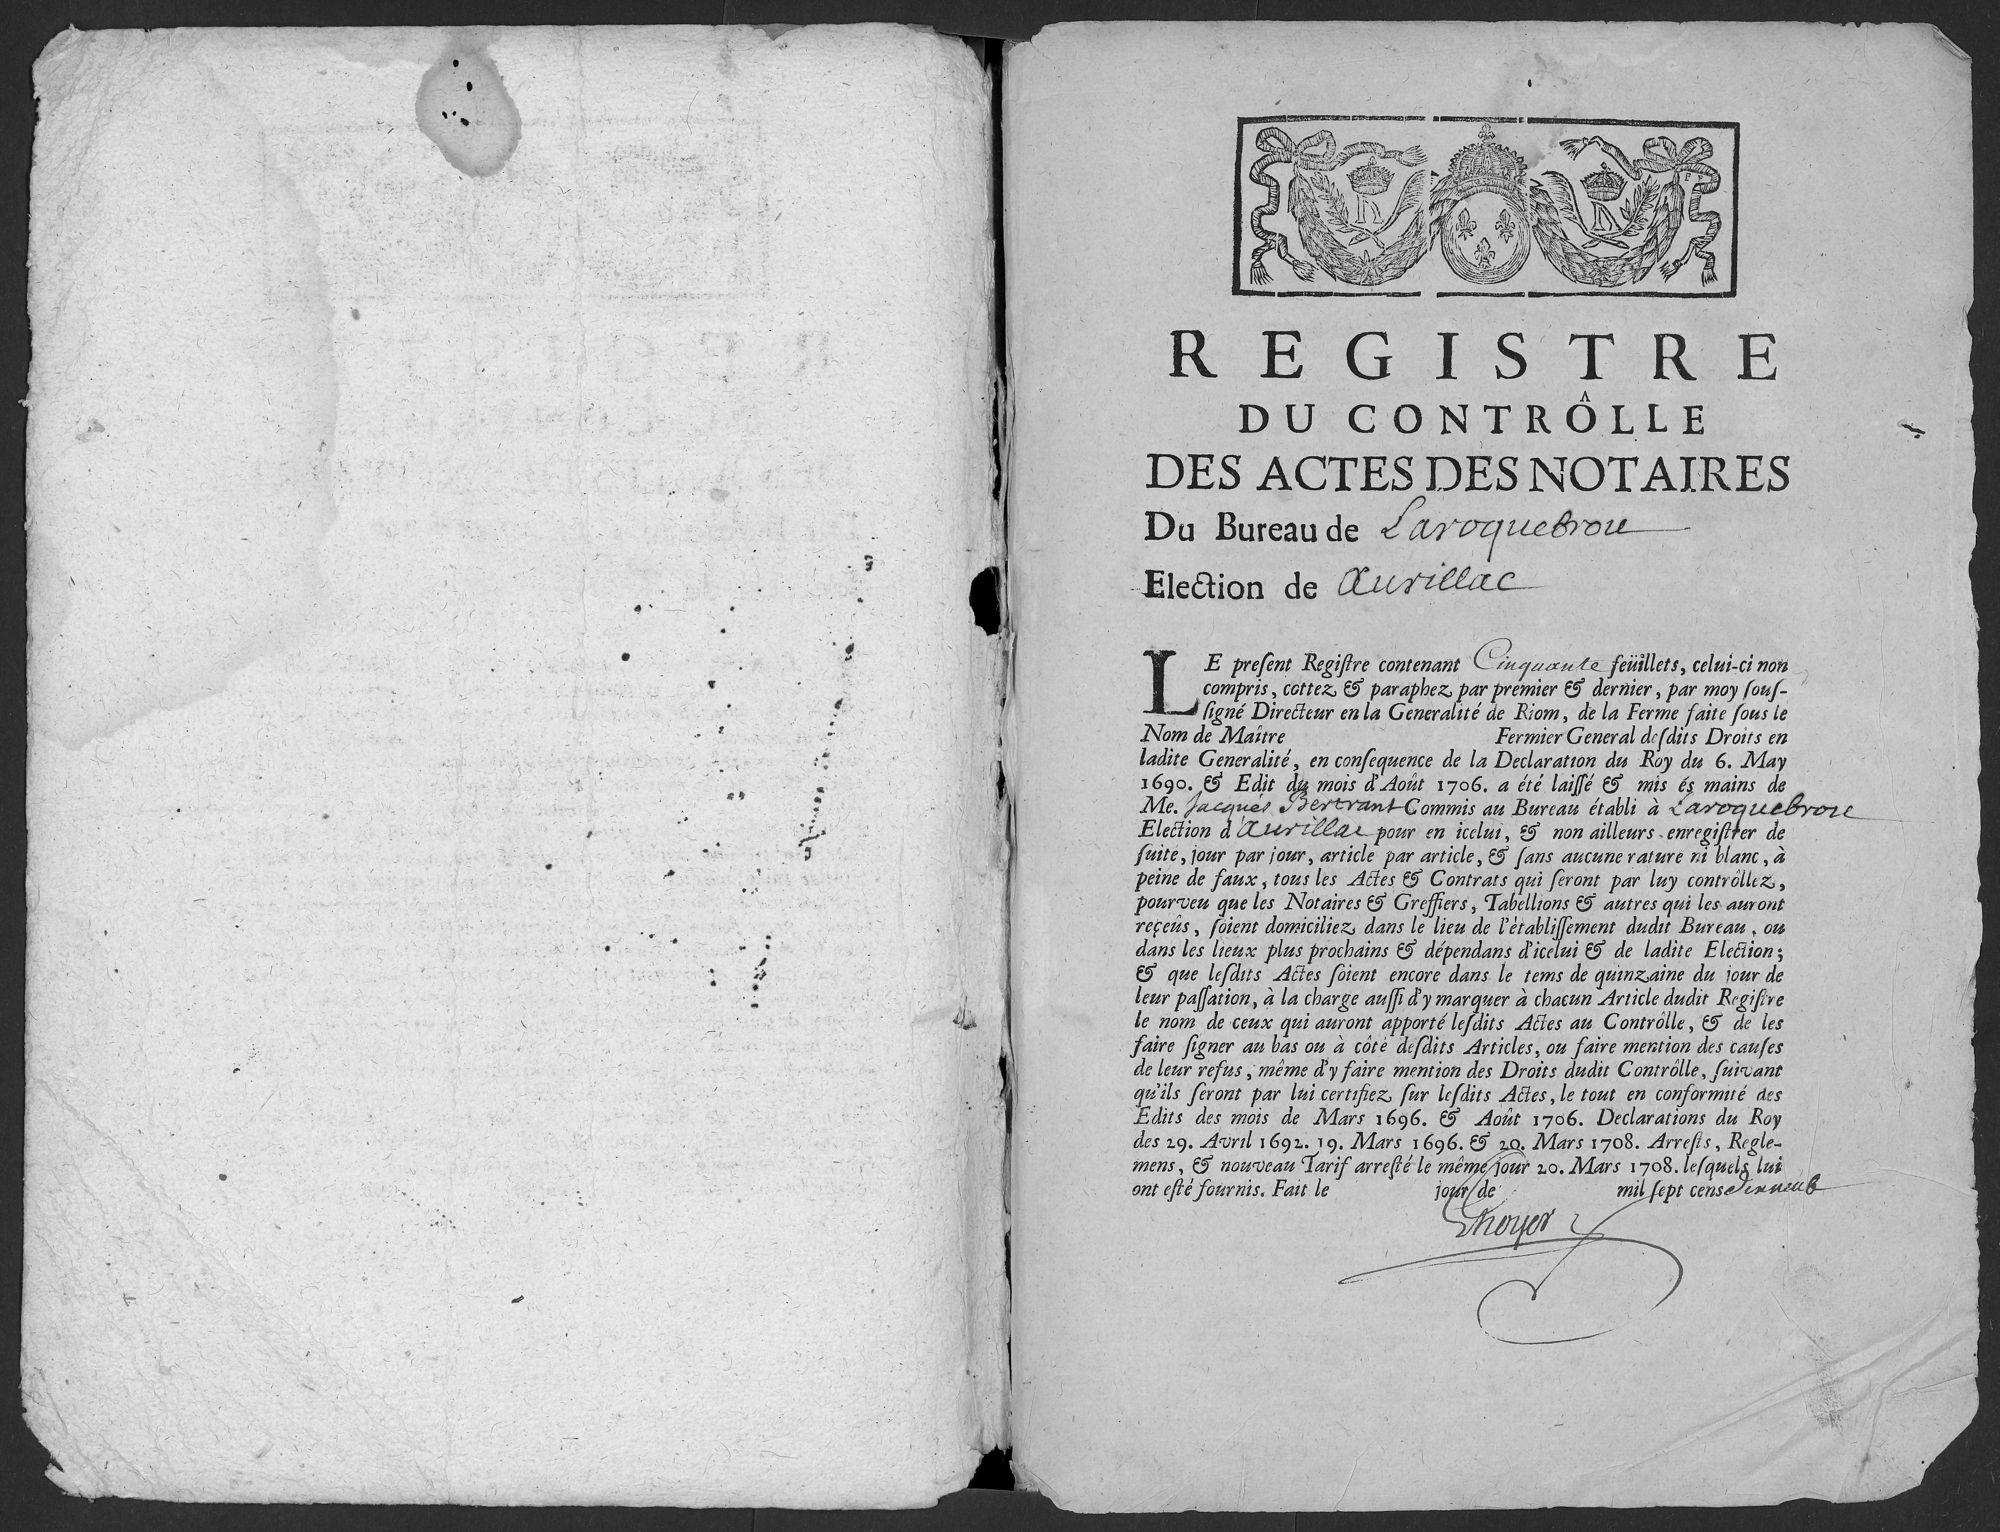 REGISTRE
DU CONTRÔLLE
DES ACTES DES NOTAIRES
Du Bureau de Laroquebrou
Election de Aurillac
LE preſent Regiſtre contenant Cinquante feüillets, celui-ci non
compris, cottez & paraphez par premier & dernier, par moy ſouſ-
ſigné Directeur en la Generalité de Riom, de la Ferme faite ſous le
Nom de Maître Fermier General deſdits Droits en
ladite Generalité, en conſequence de la Declaration du Roy du 6. May
1690. & Edit du mois d'Août 1706. a été laiſſé & mis és mains de
Me. Jacques Bertrant Commis au Bureau établi à Laroquebrou
Election d'Aurillac pour en icelui, & non ailleurs enregiſtrer de
ſuite, jour par jour, article par article, & ſans aucune rature ni blanc, à
peine de faux, tous les Actes & Contrats qui ſeront par luy contrôllez,
pourveu que les Notaires & Greffiers, Tabellions & autres qui les auront
reçeûs, ſoient domiciliez dans le lieu de l'établiſſement dudit Bureau, ou
dans les lieux plus prochains & dépendans d'icelui & de ladite Election;
& que leſdits Actes ſoient encore dans le tems de quinzaine du jour de
leur paſſation, à la charge auſſi d'y marquer à chacun Article dudit Regiſtre
le nom de ceux qui auront apporté leſdits Actes au Contrôlle, & de les
faire ſigner au bas ou à côté deſdits Articles, ou faire mention des cauſes
de leur refus, même d'y faire mention des Droits dudit Contrôlle, ſuivant
qu'ils ſeront par lui certifiez ſur leſdits Actes, le tout en conformité des
Edits des mois de Mars 1696. & Août 1706. Declarations du Roy
des 29. Avril 1692. 19. Mars 1696. & 20. Mars 1708. Arreſts, Regle-
mens, & nouveau Tarif arreſté le même jour 20. Mars 1708. leſquels lui
ont eſté fournis. Fait le jour de mil ſept cens